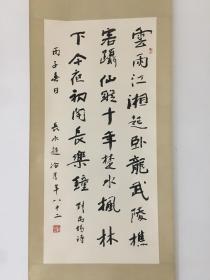 雲雨江湘起卧龍武陵樵
客躡仙蹤十年楚水楓林
下今夜初聞長樂鐘 劉禹錫詩
丙子春日 長水趙冷月年八十二